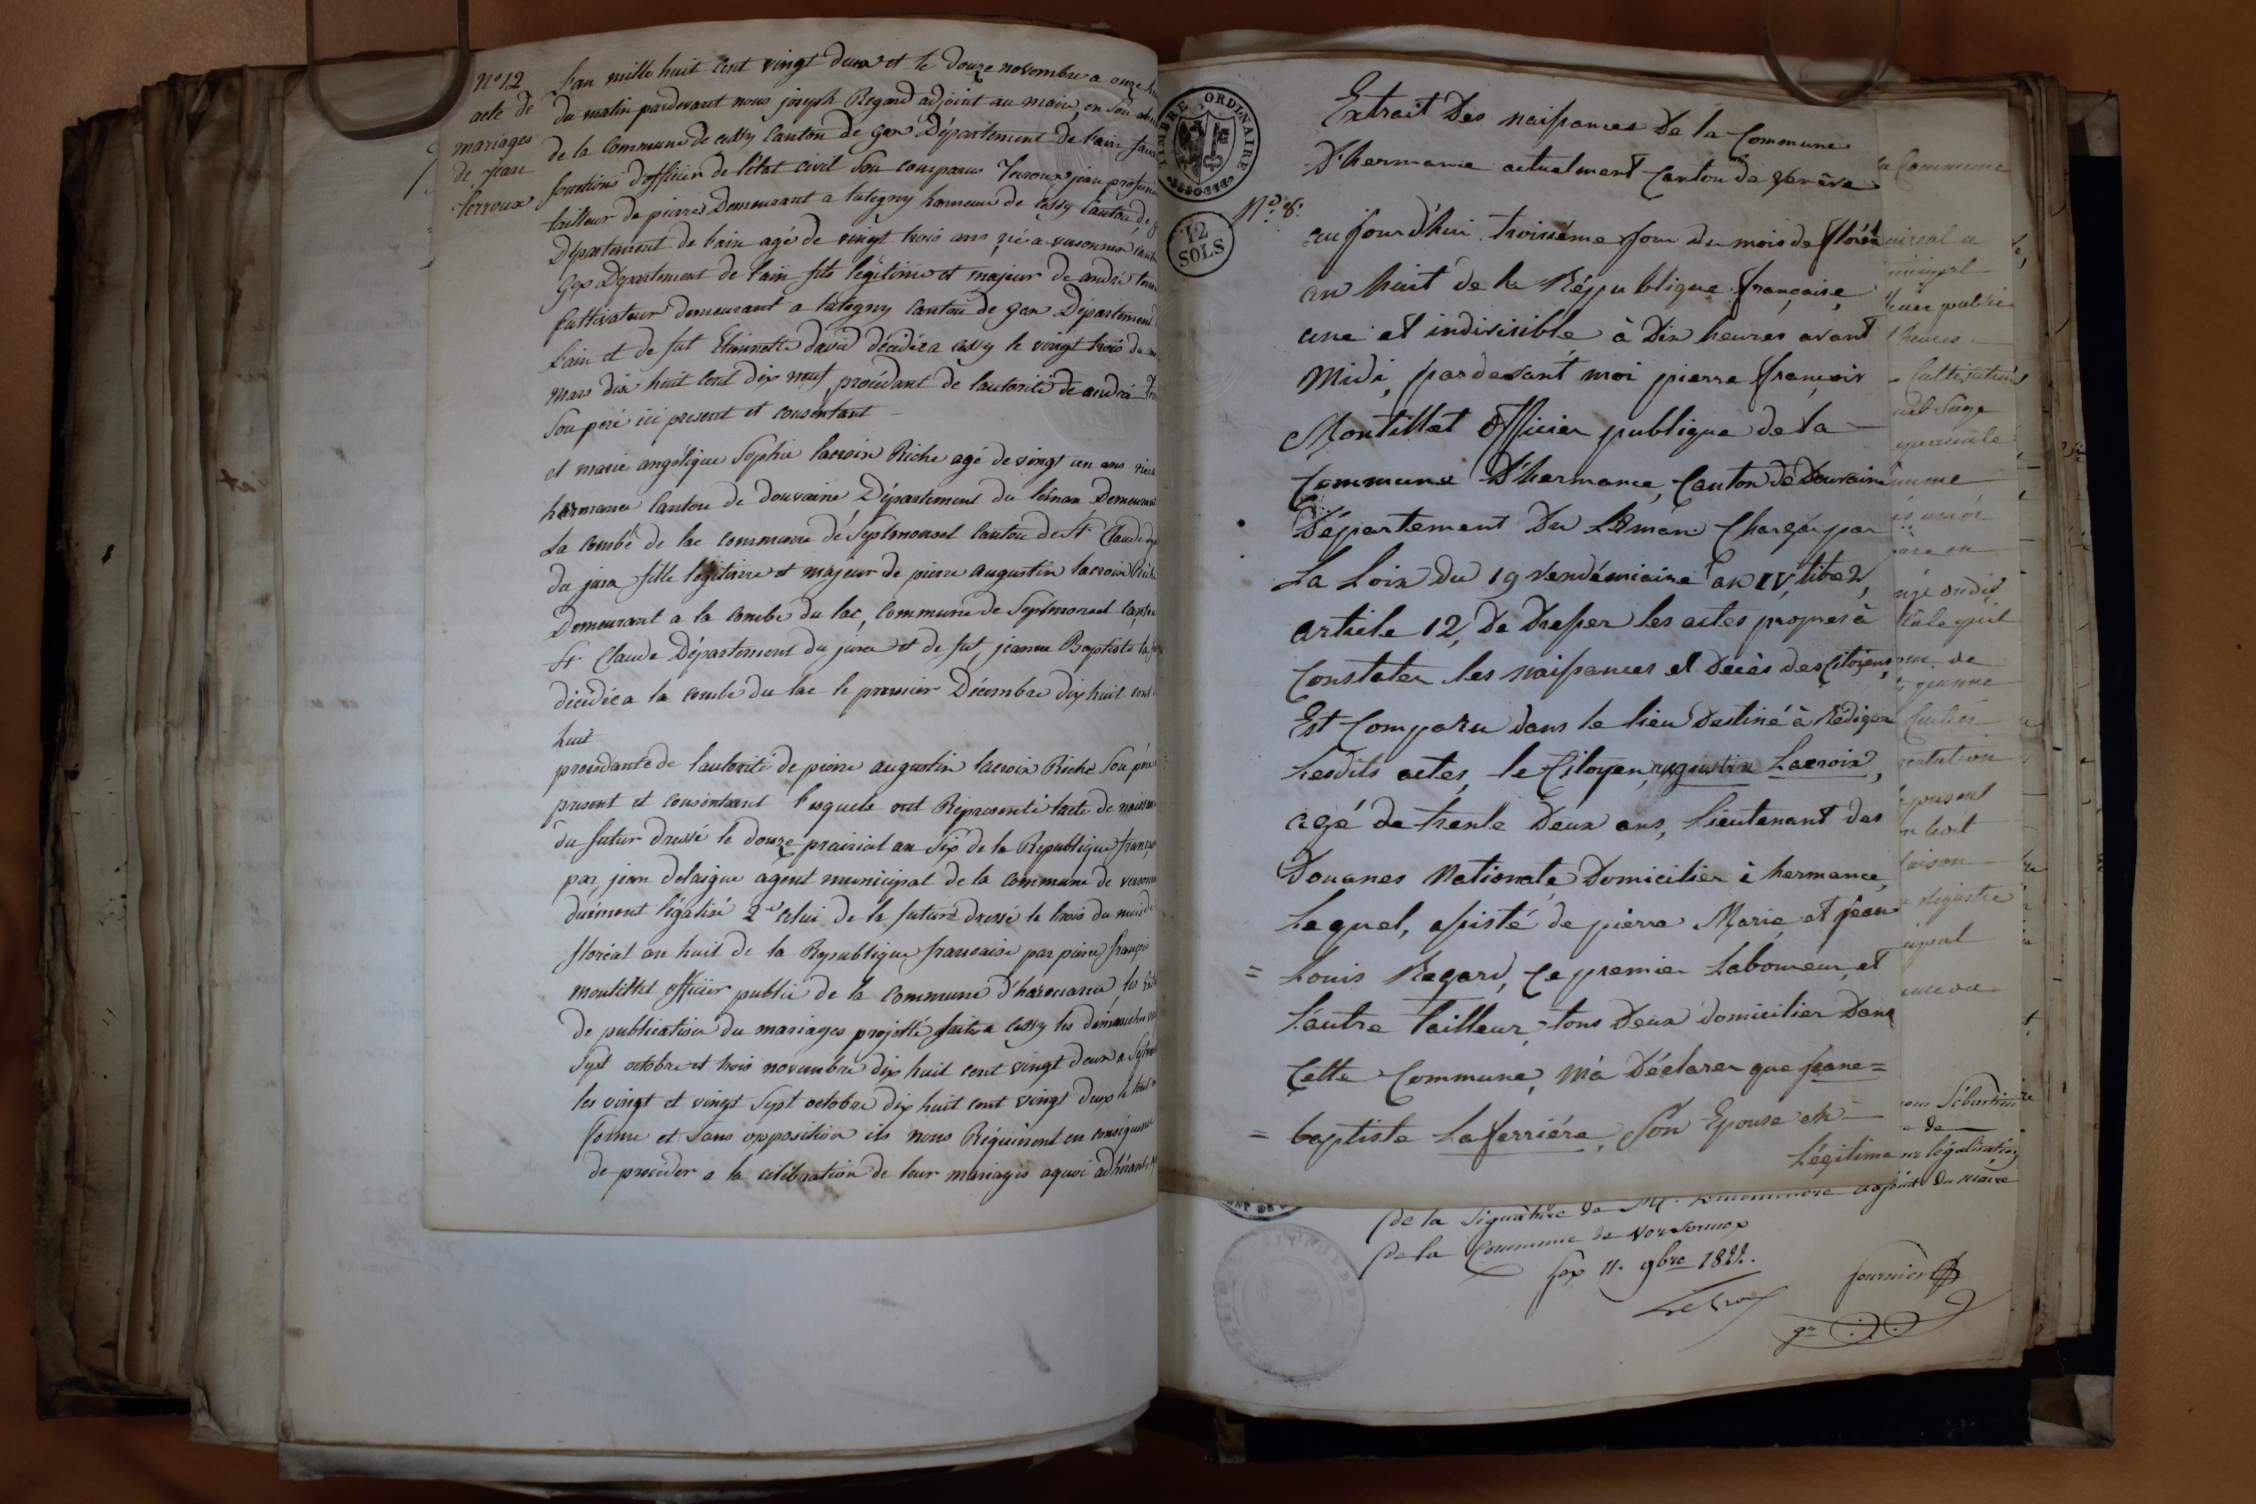 N° 12
acte de
mariages
de jean
terroux
L'an mille huit cent vingt deux et le douze novembre a onze
du matin pardevant nous joseph Regard adjoint au maire, en son
de la Commune de cessy Canton de Gex Département de l'ain
fonctions d'officier de l'état civil Son comparus Terroux jean
tailleur de pierres Demeurant a tutegny hameau de Cessy Canton de
Département de l'ain agé de vingt trois ans, né a versonnex
gex Département de l'ain fils légitime et majeur de andré
Cultivateur demeurant a tutegny Canton de gex Département
l'ain et de fut Etiennette david décédée a cessy le vingt trois du
mars dix huit cent dix neuf procédant de l'autorité de andré
Son pere ici present et consentant
et marie angélique Sophie lacroix Riche agé de vingt un ans
hermance Canton de douvaine, Département du léman Demeurant
La combe de lac commune de Septmoncel Canton de St Claude
du jura fille légitime et majeur de pierre augustin lacroix
Demeurant a la combe du lac, commune de Septmoncel
St Claude Département du jura et de fut, jeanne Baptiste
décédée a la combe du lac le premier Décembre dix huit cent
huit
procédante de l'autorité de pierre augustin lacroix Riche Son père
present et consentant lesquels ont Représenté l'acte de
du futur dressé le douze prairial an Six de la Republique
par jean delaigue agent municipal de la commune de
duement légalisé 2° celui de la future dressé le trois du mois de
floréal an huit de la Republique francaise par pierre françois
montillet officier public de la commune d'hermance
de publication du mariages projetté faites a cessy les dimanches
Sept octobre et trois novembre dix huit cent vingt deux a
les vingt et vingt Sept octobre dix huit cent vingt deux le tout
forme et Sans opposition ils nous Réquirent en conséquence
de procéder a la célébration de leur mariages aquoi adhérant
TIMBRE ORDINAIRE
12
SOLS
Extrait Des naissances De la Commune
D'hermance actuelment Canton de genève
N.° 8.
aujourd'hui troisième jour du mois de floréal
an huit de la République française
une et indivisible à dix heures avant
Midi, pardevant moi pierre françois
Montillet Officier publique de la
Commune D'hermance, Canton de Douvaine
Département Du Léman Chargé par
La Loix du 19 vendémiaire an IV, titre 2,
article 12, De Dresser les actes propres à
Constater les naissances et Décès des Citoyens,
Est Comparu dans le lieu Destiné à Rédiger
Lesdits actes, le Citoyen augustin Lacroix,
agé de trente Deux ans, Lieutenant des
Douanes Nationale Domicilier à hermance,
Lequel, assisté de pierre Marie et Jean
= Louis Regard, Ce premier Laboureur, et
L'autre Tailleur, tous Deux domicilier Dans
Cette Commune, m'a Déclarer que Jeane=
= baptiste Laferriére, Son Epouse en
Légitime
la Commune
public
heures
Cultivateur
de
jeanne
registre
Sébastien
de
légalisation
de la Signature de Mr. adjoint du maire
de la Commune de versonnex
Gex 11. 9bre 1822.
fournier